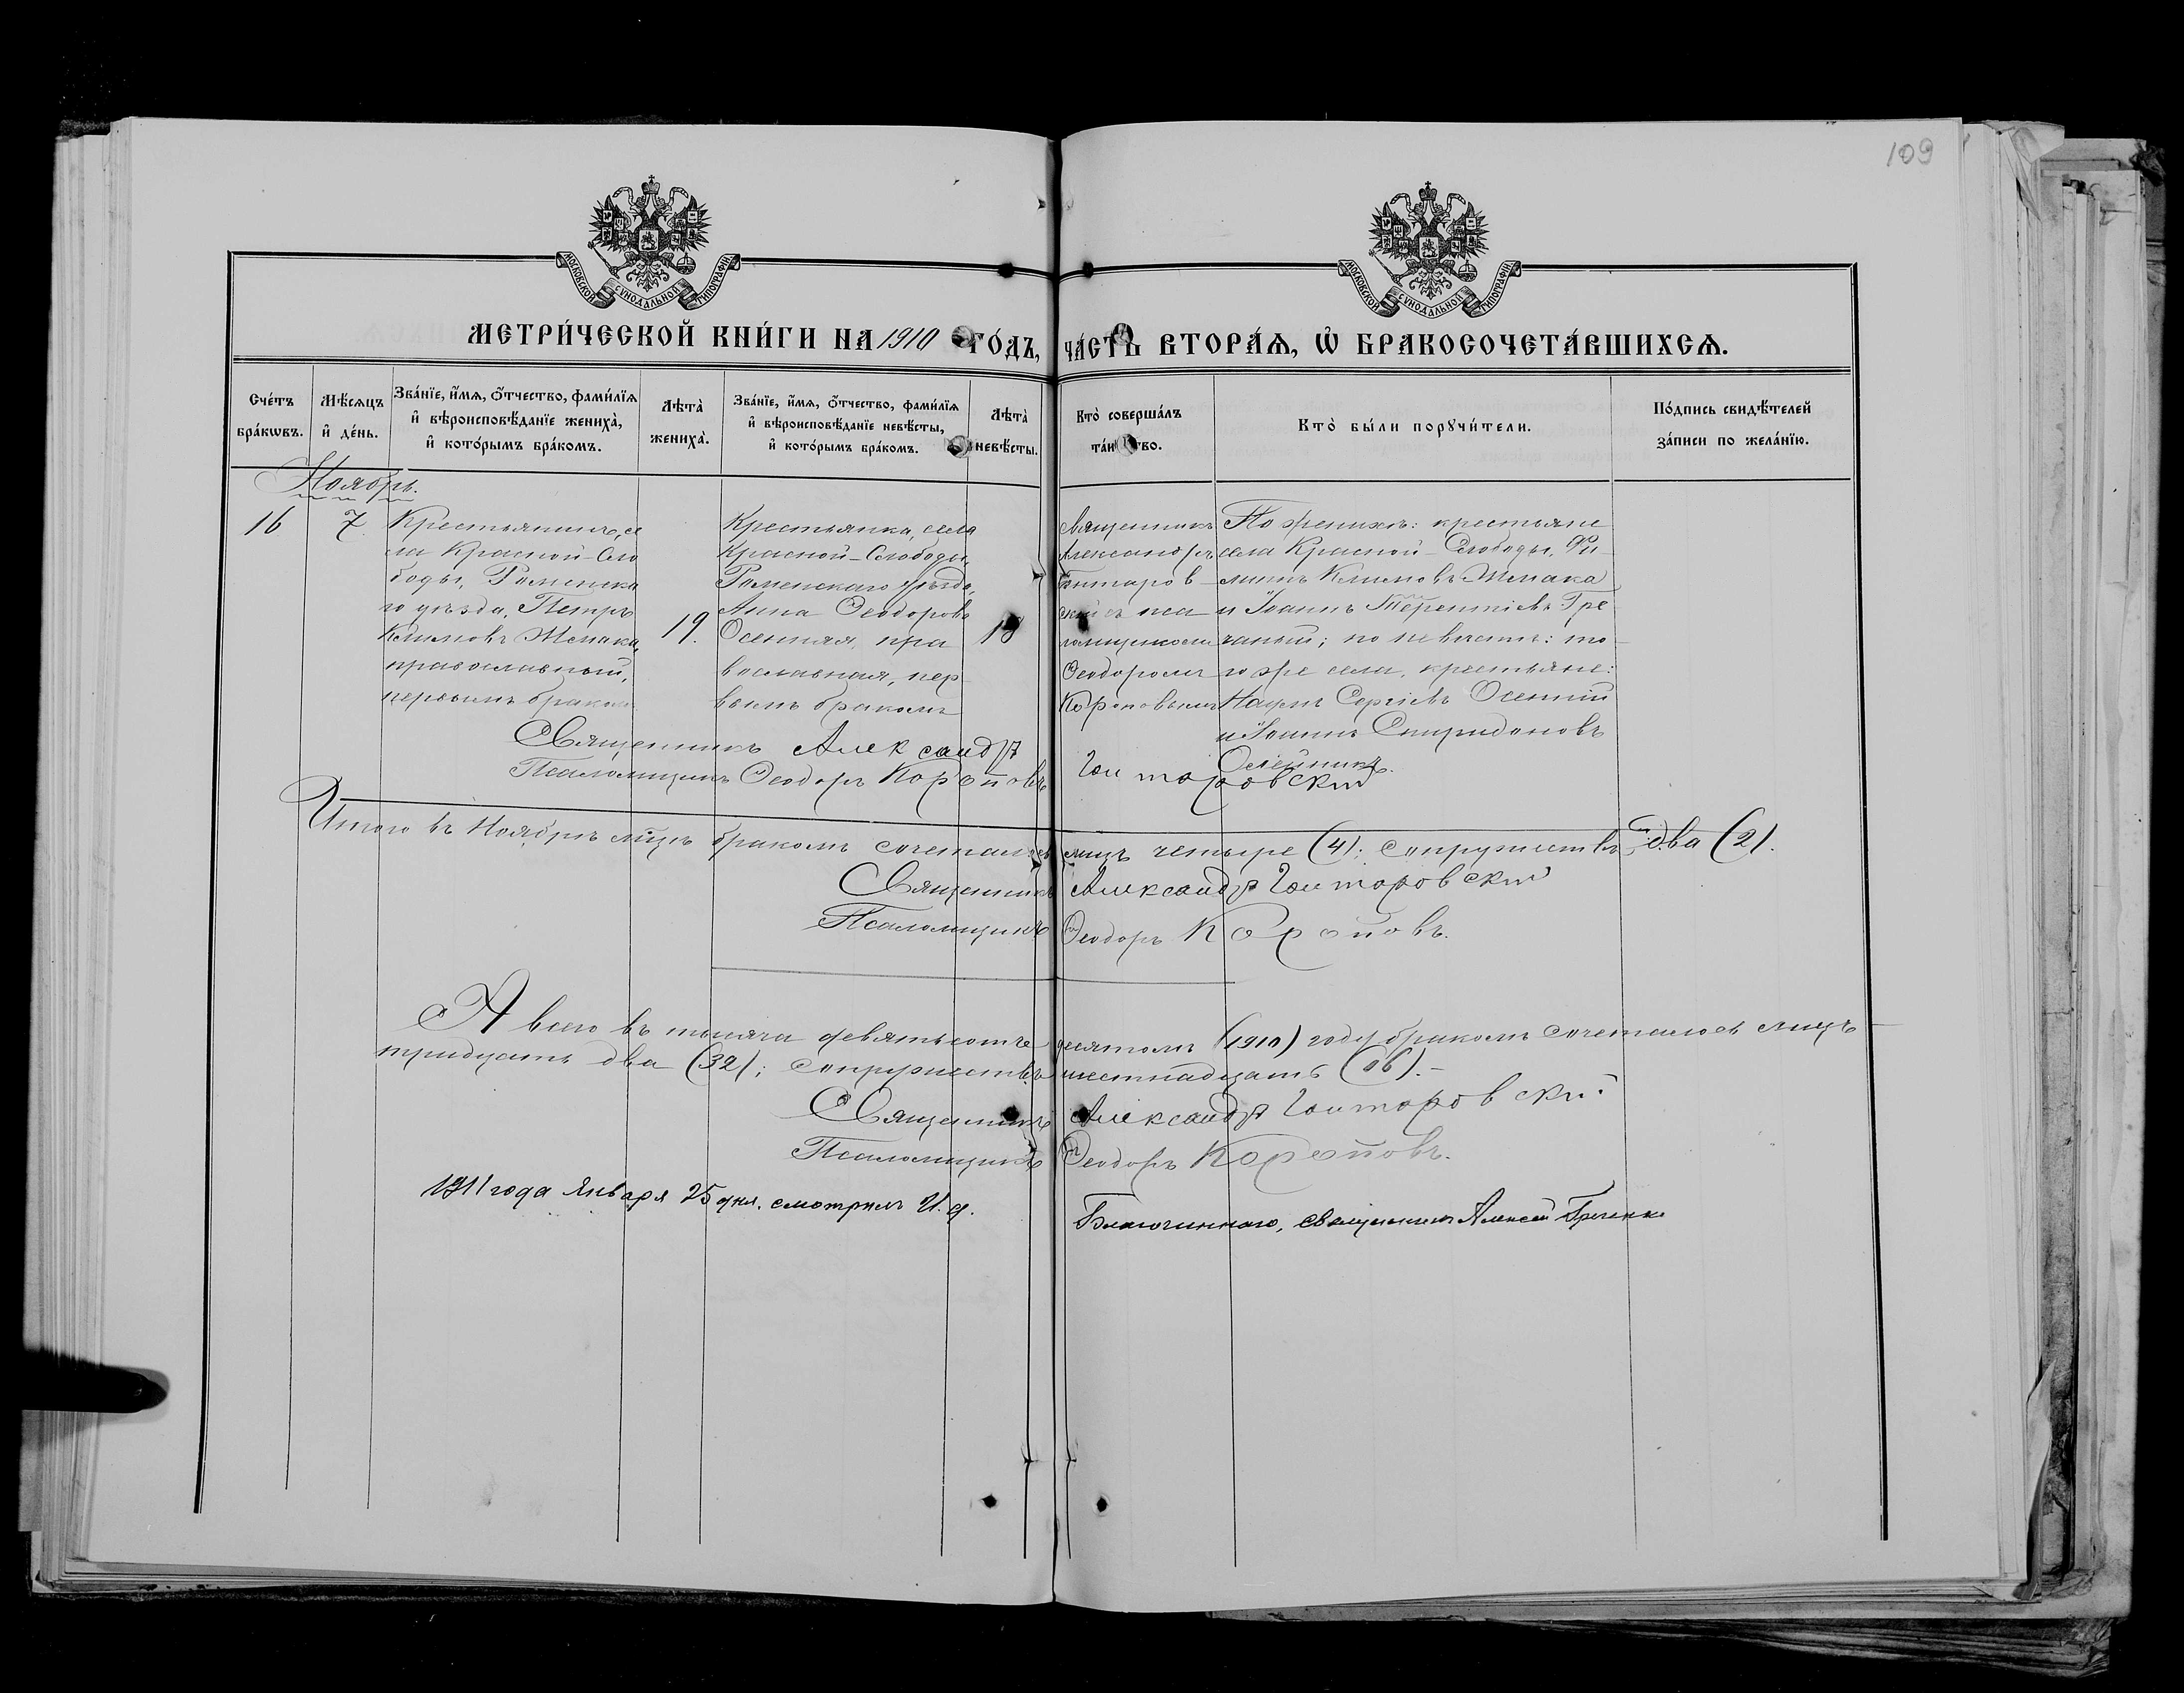 109
МОСКОВСКОЙ СѴНОДАЛЬНОЙ ТИПОГРАФІИ
МОСКОВСКОЙ СѴНОДАЛЬНОЙ ТИПОГРАФІИ
МЕТРИ́ЧЕСКОЙ КНИ́ГИ НА 1910 ГО́ДЪ,
ЧА́СТЬ ВТОРА́Ѧ, Ѡ БРАКОСОЧЕТА́ВШИХСѦ.
Сче́тъ
бра́кѡвъ.
Мѣ́сѧцъ
и҆ де́нь.
Зва́нїе, и҆́мѧ, ѻ҆́тчество, фами́лїѧ
и҆ вѣроисповѣ́данїе жениха̀,
и҆ кото́рымъ бра́комъ.
Лѣта̀
жениха̀.
Зва́нїе, и҆́мѧ, ѻ҆́тчество, фами́лїѧ
и҆ вѣроисповѣ́данїе невѣ́сты,
и҆ кото́рымъ бра́комъ.
Лѣта̀
невѣ́сты.
Кто̀ соверша́лъ
та́инство.
Кто̀ бы́ли порꙋчи́тели.
По́дпись свидѣ́телей
за́писи по жела́нїю.
Ноябрь.
16
7
Крестьянинъ, се
ла Красной-Сло
боды, Роменска
го уѣзда, Петръ
Климовъ Жмака,
православный,
первымъ бракомъ
19.
Крестьянка, села
Красной-Слободы,
Роменскаго уѣзда,
Анна Ѳеодорова
Осенняя, пра
вославная, пер
вымъ бракомъ
18
Священникъ
Александръ
Гаитаров
скій съ пса
ломщикомъ
Ѳеодоромъ
Короповымъ
По женихѣ: крестьяне
села Красной-Слободы, Фи-
липпъ Климовъ Жмака
и Іоаннъ Терентіевъ Гре
чаный; по невѣстѣ: то-
го же села, крестьяне:
Наумъ Сергіевъ Осенній
и Іоаннъ Спиридоновъ
Олейникъ.
Священникъ Александръ Гаитаровскій
Псаломщикъ Ѳеодоръ Короповъ
Итого въ Ноябрѣ мѣсцѣ бракомъ сочеталось лицъ четыре (4); супружествъ два (2).
Священникъ Александръ Гаитаровскій
Псаломщикъ Ѳеодоръ Короповъ.
А всего въ тысяча девятьсотъ десятомъ (1910) году бракомъ сочеталось лицъ
тридцать два (32); супружествъ шестнадцать (16).
Священникъ Александръ Гаитаровскій
Псаломщикъ Ѳеодоръ Короповъ.
1911 года Января 25 дня. смотрѣлъ И. д. Благочиннаго, священникъ Алексій